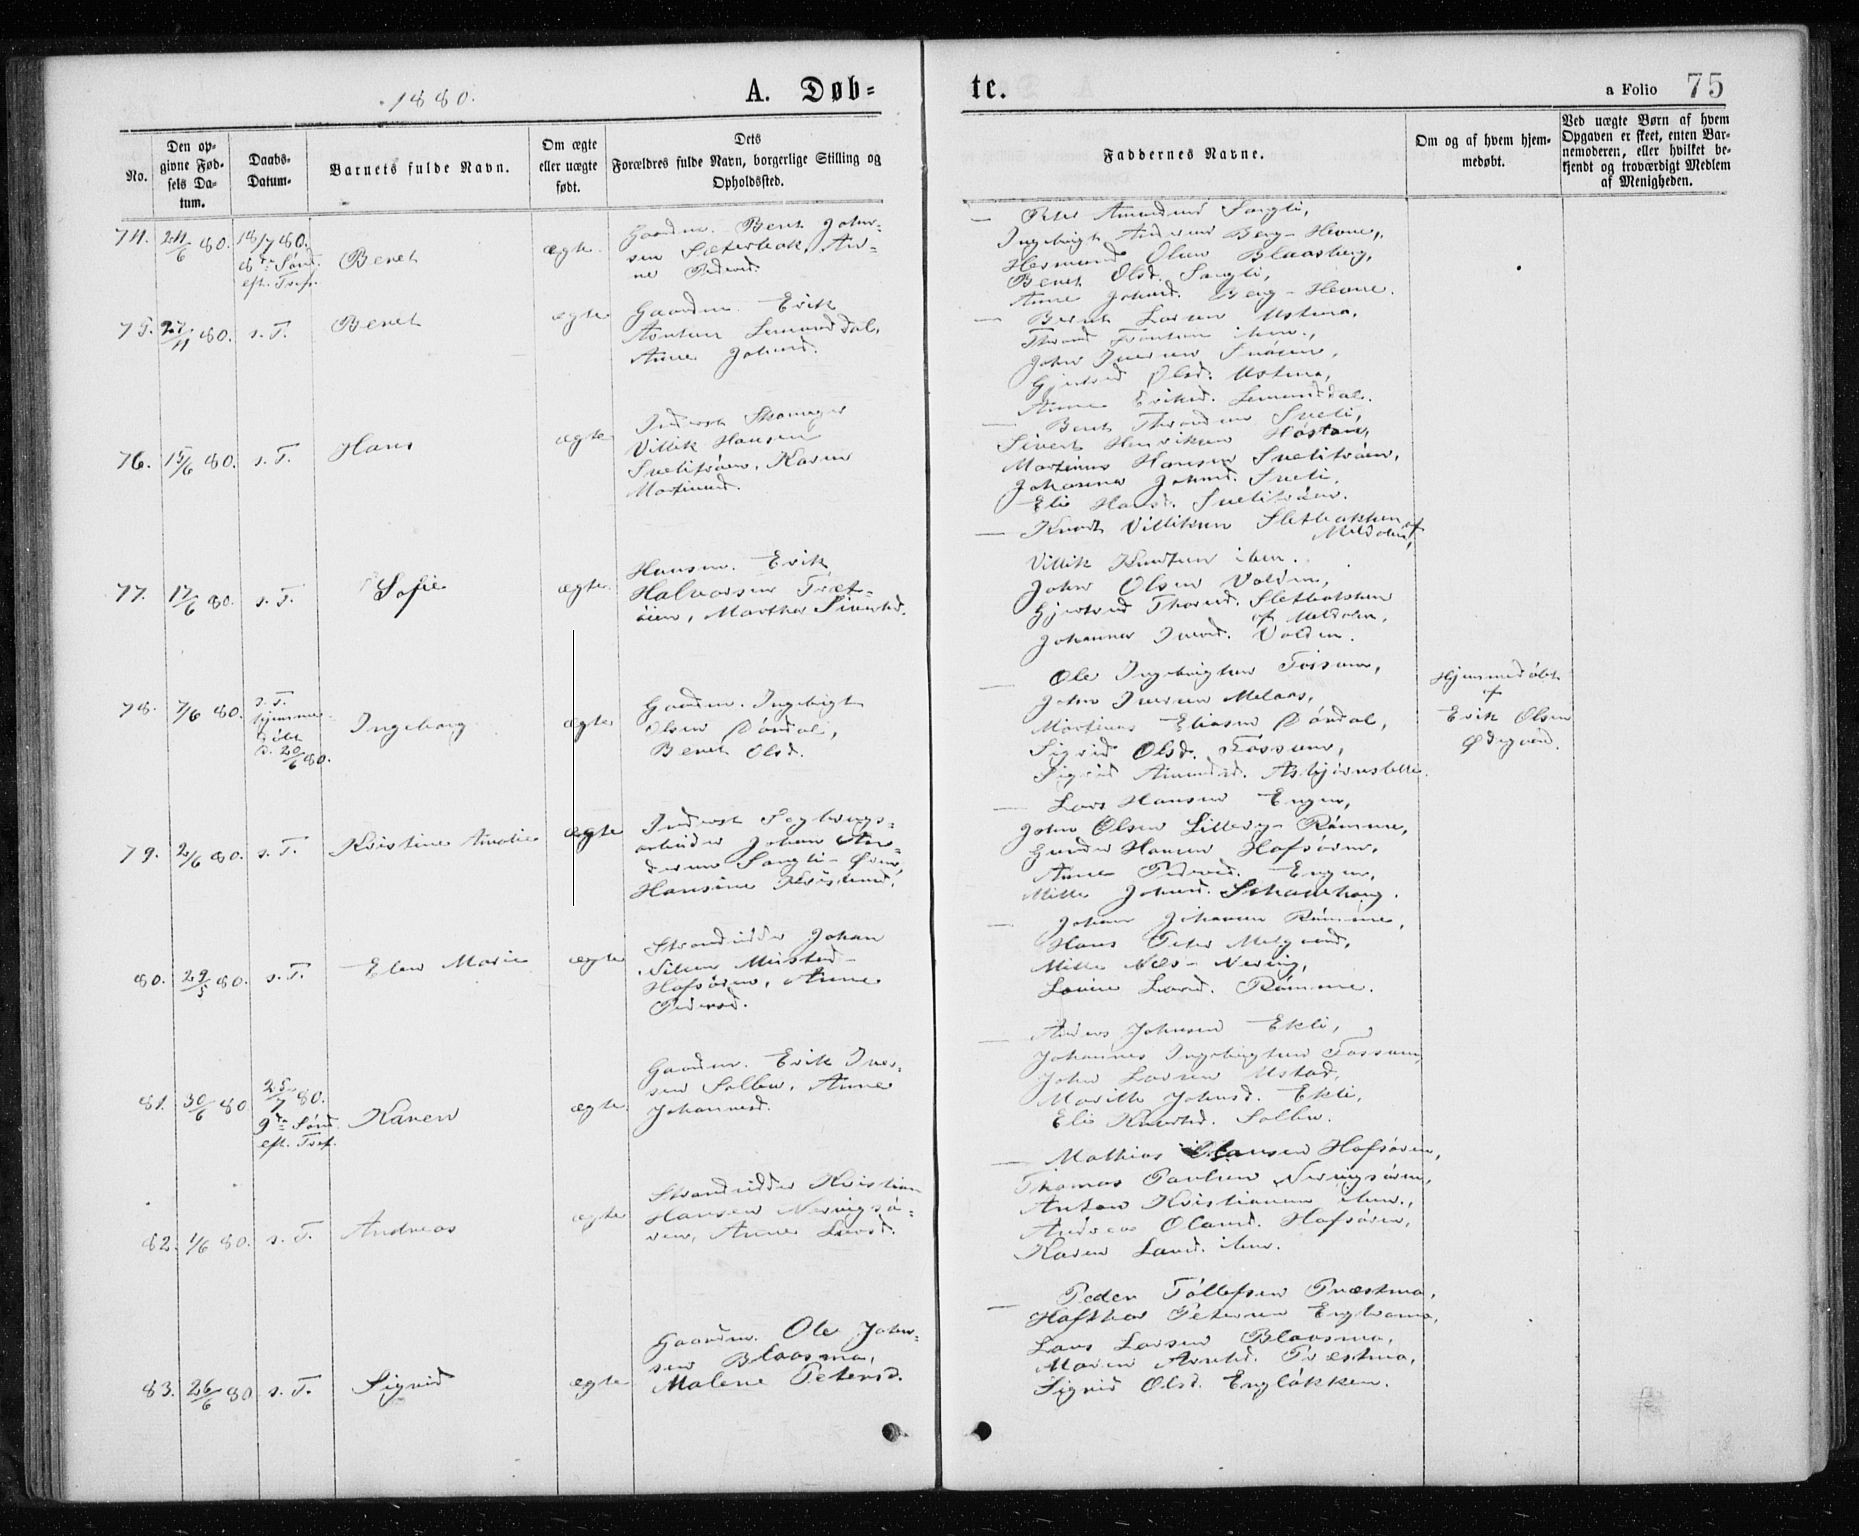 1880.
A. Døb=
te.
a Folio 75
No.
Den op-
givne Fød-
sels Da-
tum.
Daabs-
Datum.
Barnets fulde Navn.
Om ægte
eller uægte
født.
Dets
Forældres fulde Navn, borgerlige Stilling og
Opholdssted.
Faddernes Navne.
Om og af hvem hjem-
medøbt.
Ved uægte Børn af hvem
Opgaven er skeet, enten Bar-
nemoderen, eller hvilket be-
kjendt og troværdigt Medlem
af Menigheden.
74. 24/6 80. 18/7 80.
8de Sønd.
eft. Tref.
Beret
ægte.
Gaardm. Beret John-
sen Sæterbak, An-
ne Pedersd.
— Peter Amundsen Songli,
Ingebrigt Andersen Berg-Hevne,
Hermund Olsen Blaasberg,
Beret Olsd. Songli,
Anne Johnsd. Berg-Hevne.
75. 27/4 80. s. T.
Beret
ægte
Gaardm. Erik
Arntsen
Anne Johnsd.
— Bernt Larsen Ustmo,
John Iversen
Gjertrud Olsd. Ustmo,
Anne Eriksd.
76. 15/6 80. s. T.
Hans
ægte
Inderst Skomager
Villik Hansen
Karen
Martinusd.
— Berit
Sivert Henriksen
Martinus Hansen
Johanna Johnsd.
Eli Hansd.
77. 17/6 80. s. T.
Sofie
ægte.
Husm. Erik
Halvorsen Træt-
øien, Marthe Sivertsd.
— Knudt Villiksen Sletbakken af
Meldalen,
Villik Knudsen ibm.
John Olsen Volden,
Gjertrud Thoresd. Sletbakken
af Meldalen,
Johanna Iversd. Volden.
78. 7/6 80. s. T.
hjemme-
døbt
d. 20/6 80.
Ingeborg
ægte
Gaardm. Ingebrigt
Olsen Dørdal,
Beret Olsd.
— Ole Ingebrigtsen Fossum,
John Iversen Melaas,
Martinus Eliasen Dørdal,
Sigrid Olsd. Fossum,
Sigrid Amundsd. Asbjørnslette.
Hjemmedøbt
af
Erik Olsen
Ødegaard.
79. 2/6 80. s. T.
Kristine Amalie
ægte
Inderst Teglverks-
arbeider Johan An-
dersen Songli-Øien,
Hansine Kristensd.
— Lars Hansen Engen,
John Olsen Lilleeng-Rømme,
Hansen Hofsøren,
Anne Pedersd. Engen,
Mille Johnsd.
80. 29/5 80. s. T.
Elen Marie
ægte
Strandsidder Johan
Nilsen Mustad-
Hofsøren, Anne
Pedersd.
— Johan Johansen Rømme,
Hans Peter
Mille Næs-Nering,
Larsd. Rømme.
81. 30/6 80 25/7 80.
9de Sønd.
eft. Tref.
Karen
ægte.
Gaardm. Erik Iver-
sen Solbu, Anne
Johannesd.
— Anders Johnsen Ekli,
Johannes Ingebrigtsen Fossum,
John Larsen Ustad,
Marith Johnsd. Ekli,
Eli Knudsd. Solbu.
82. 1/6 80. s. T.
Andreas
ægte
Strandsidder Kristian
Hansen Neringsø-
ren, Anne Larsd.
— Mathias Hansen Hofsøren,
Thomas Paulsen Neringsøren,
Anton Kristiansen ibm.,
Andrea Olausd. Hofsøren,
Karen Larsd. ibm.
83. 26/6 80 s. T.
Sigrid
ægte
Gaardm. Ole John-
sen Blaasmo,
Malene Petersd.
— Peder Tøllefsen Præstmo,
Hafthor Petersen Englramo,
Lars Larsen Blaasmo,
Maren Arntsd. Præstmo,
Sigrid Olsd. Engløkken.